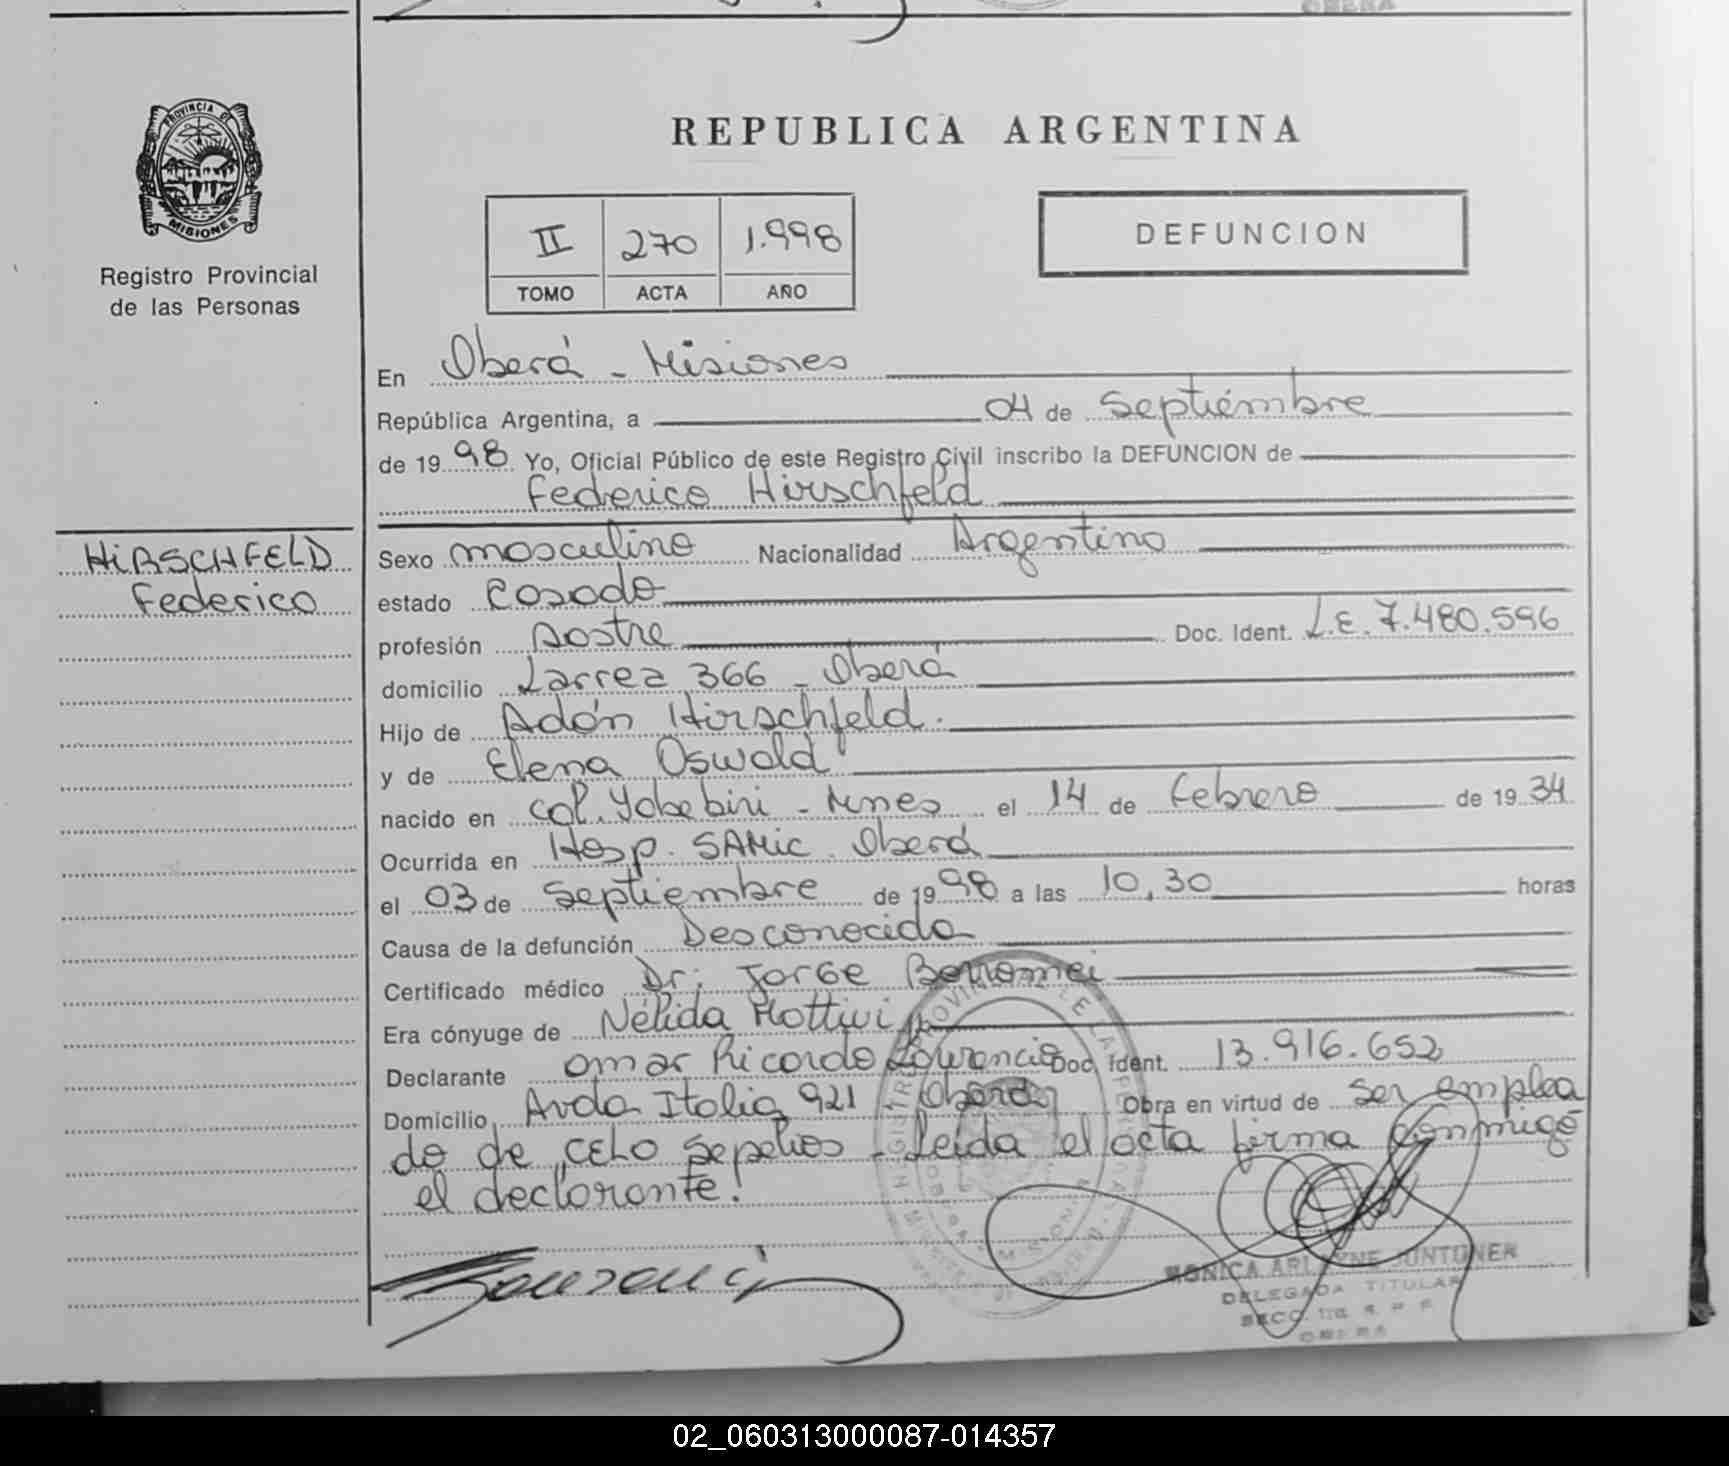 OBERA
PROVINCIA DE
MISIONES
Registro Provincial
de las Personas
REPUBLICA ARGENTINA
II 270 1.998
TOMO ACTA AÑO
DEFUNCION
En Oberá - Misiones
República Argentina, a 04 de Septiembre
de 1998 Yo, Oficial Público de este Registro Civil inscribo la DEFUNCION de
Federico Hirschfeld
HIRSCHFELD
Federico
Sexo masculino Nacionalidad Argentino
estado casado
profesión sastre Doc. Ident. L.E. 7.480.596
domicilio Larrea 366 - Oberá
Hijo de Adán Hirschfeld.
y de Elena Oswald
nacido en Col. Yabebiri - Mnes el 14 de Febrero de 1934
Ocurrida en Hosp. SAMIC. Oberá
el 03 de Septiembre de 1998 a las 10,30 horas
Causa de la defunción Desconocida
Certificado médico Dr. Jorge Borromei
Era cónyuge de Nélida Mottivi
Declarante Omar Ricardo Lourencio Doc. Ident. 13.916.652
Domicilio Avda Italia 921 - Oberá Obra en virtud de ser emplea
do de CELO Sepelios - Leída el acta firma conmigo
el declarante.
MONICA ARLAYNE JUNTUNER
DELEGADA TITULAR
OBERA
02_060313000087-014357